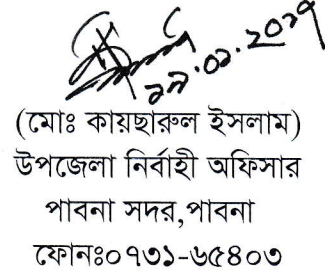 ২৯.০১.২০১৭
(মোঃ কায়ছারুল ইসলাম)
উপজেলা নির্বাহী অফিসার
পাবনা সদর,পাবনা
ফোনঃ০৭৩১-৬৫৪০৩